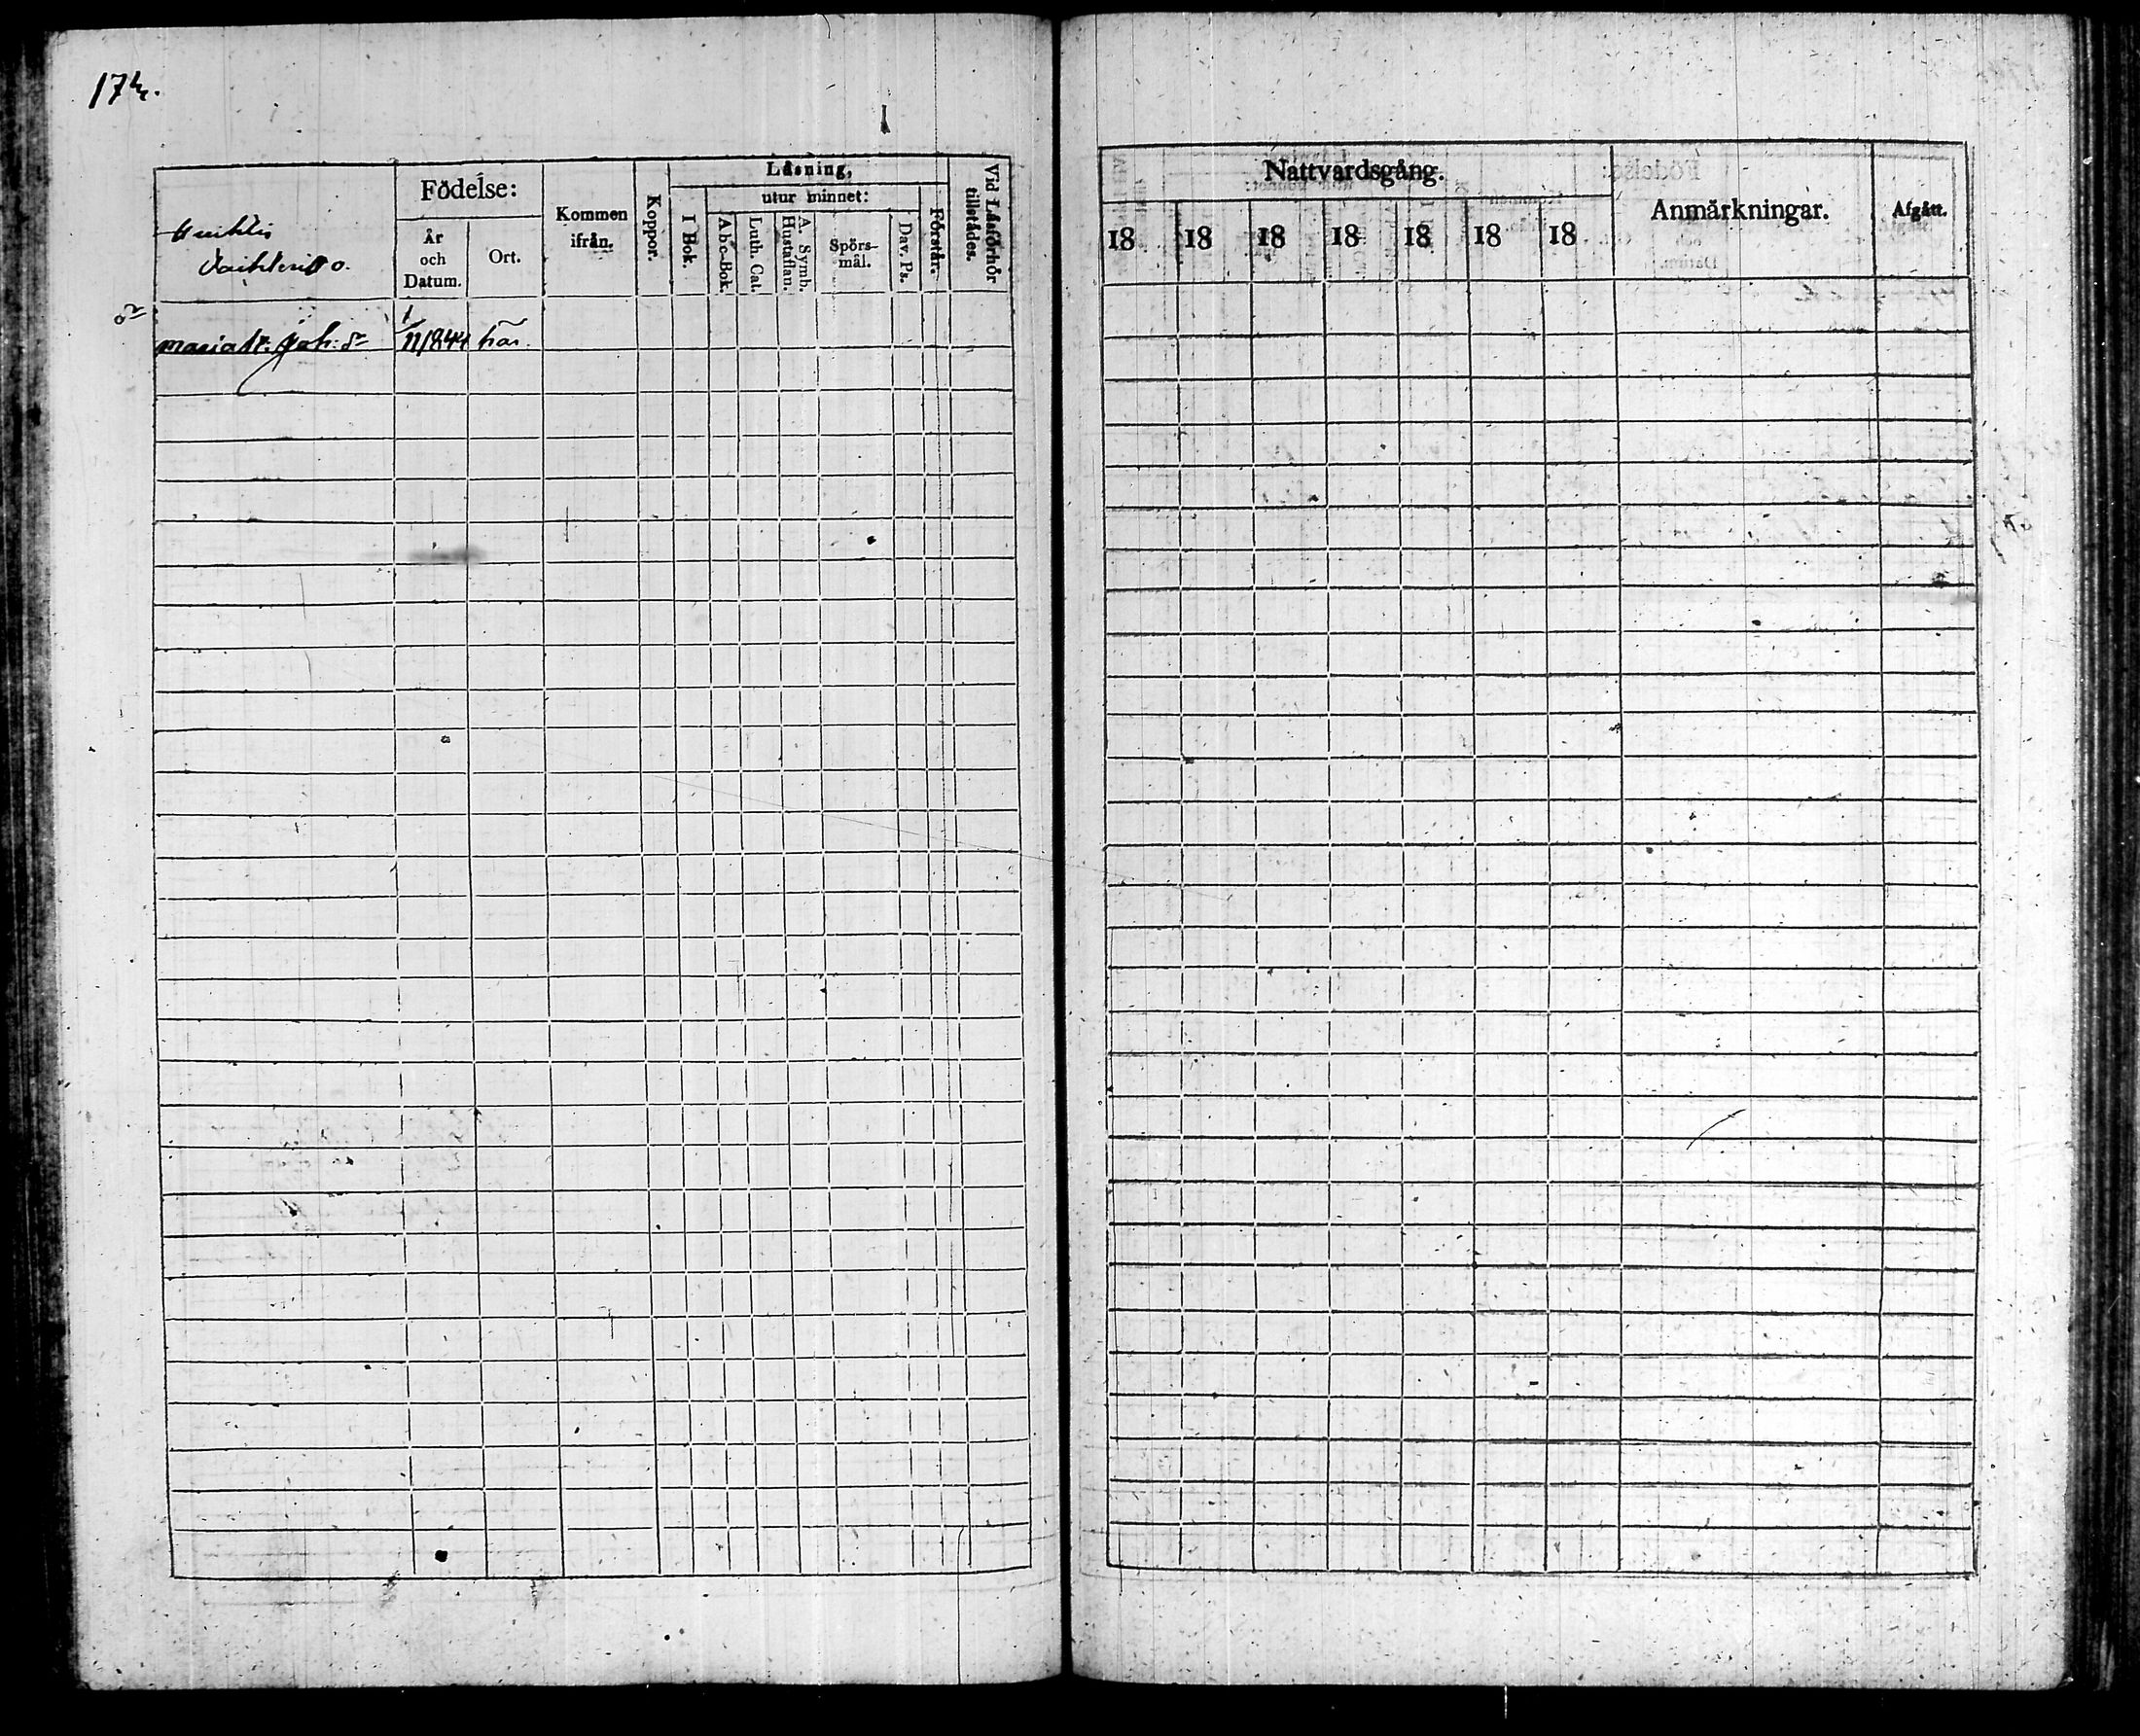 174.
Födelse:
År
och
Datum.
Ort.
Kommen
ifrån.
Koppor.
Läsning,
utur minnet:
I Bok.
Abc-Bok.
Luth. Cat.
Hustaflan.
A. Symb.
Spörs-
mål.
Dav. Ps.
Förstår.
Vid Läsförhör
tillstådes.
Maria Joh: dr 1/11 1844 här
Nattvardsgång.
18 18 18 18 18 18 18
Anmärkningar.
Afgått.